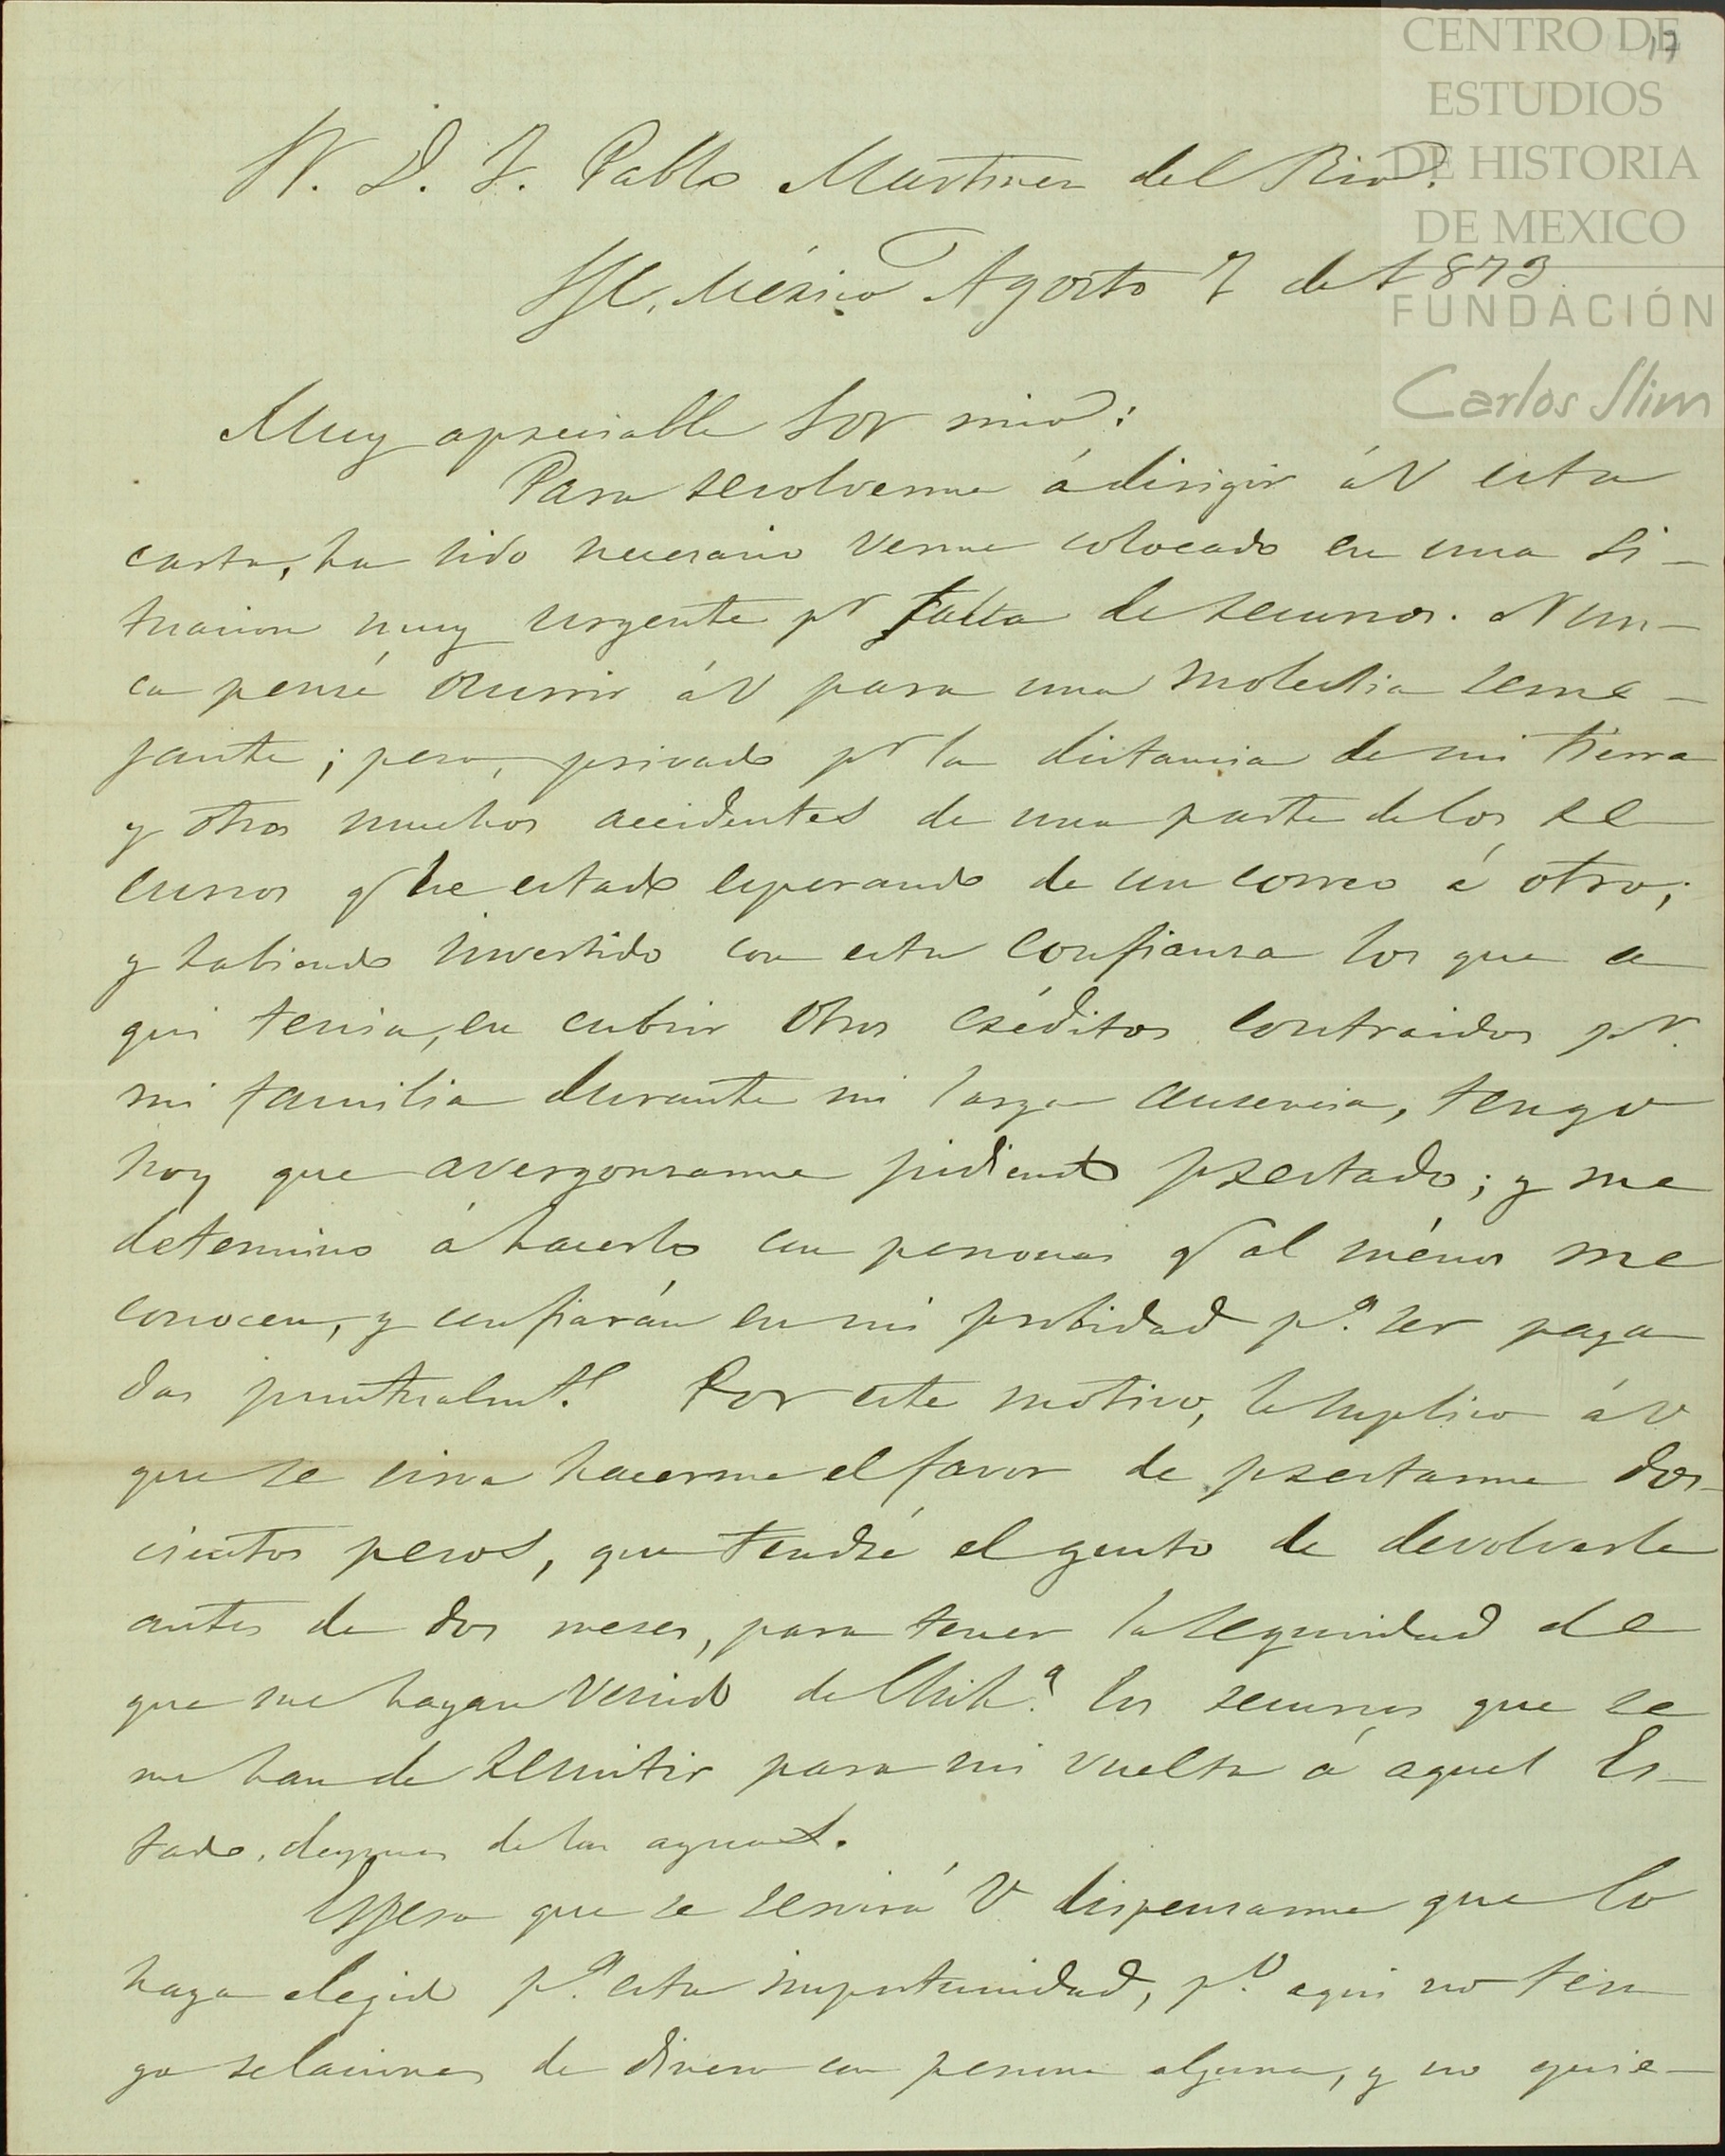 CENTRO DE
ESTUDIOS
DE HISTORIA
DE MEXICO
FUNDACIÓN
Carlos Slim
17
S. D. J. Pablo Martinez del Rio.
S/C, México Agosto 7 de 1873
Muy apreciable Sor mio:
Para resolverme á dirigir á V esta
carta, ha sido necesario verme colocado en una si-
tuacion muy urgente pr falta de recursos. Nun-
ca pensé ocurrir á V para una molestia seme-
jante; pero, privado pr la distancia de mi tierra
y otros muchos accidentes de una parte de los re
cursos q he estado esperando de un correo á otro;
y habiendo invertido con esta confianza los que a
qui tenia, en cubrir otros créditos contraidos pr.
mi familia durante mi larga ausencia, tengo
hoy que avergonzarme pidiendo prestado; y me
determino á hacerlo con personas q al ménos me
conocen, y confiarán en mi probidad pa. ser paga
das puntualmte. Por este motivo, le suplico á V
que se sirva hacerme el favor de prestarme dos-
cientos pesos, que tendré el gusto de devolverle
antes de dos meses, para tener la seguridad de
que me hayan venido de Chiha. los recursos que se
me han de remitir para mi vuelta á aquel Es-
tado, despues de las aguas.
Espero que se servirá V dispensarme que lo
haya elegido pa. esta importunidad, po. aqui no ten
go relaciones de dinero con persona alguna, y no quie-